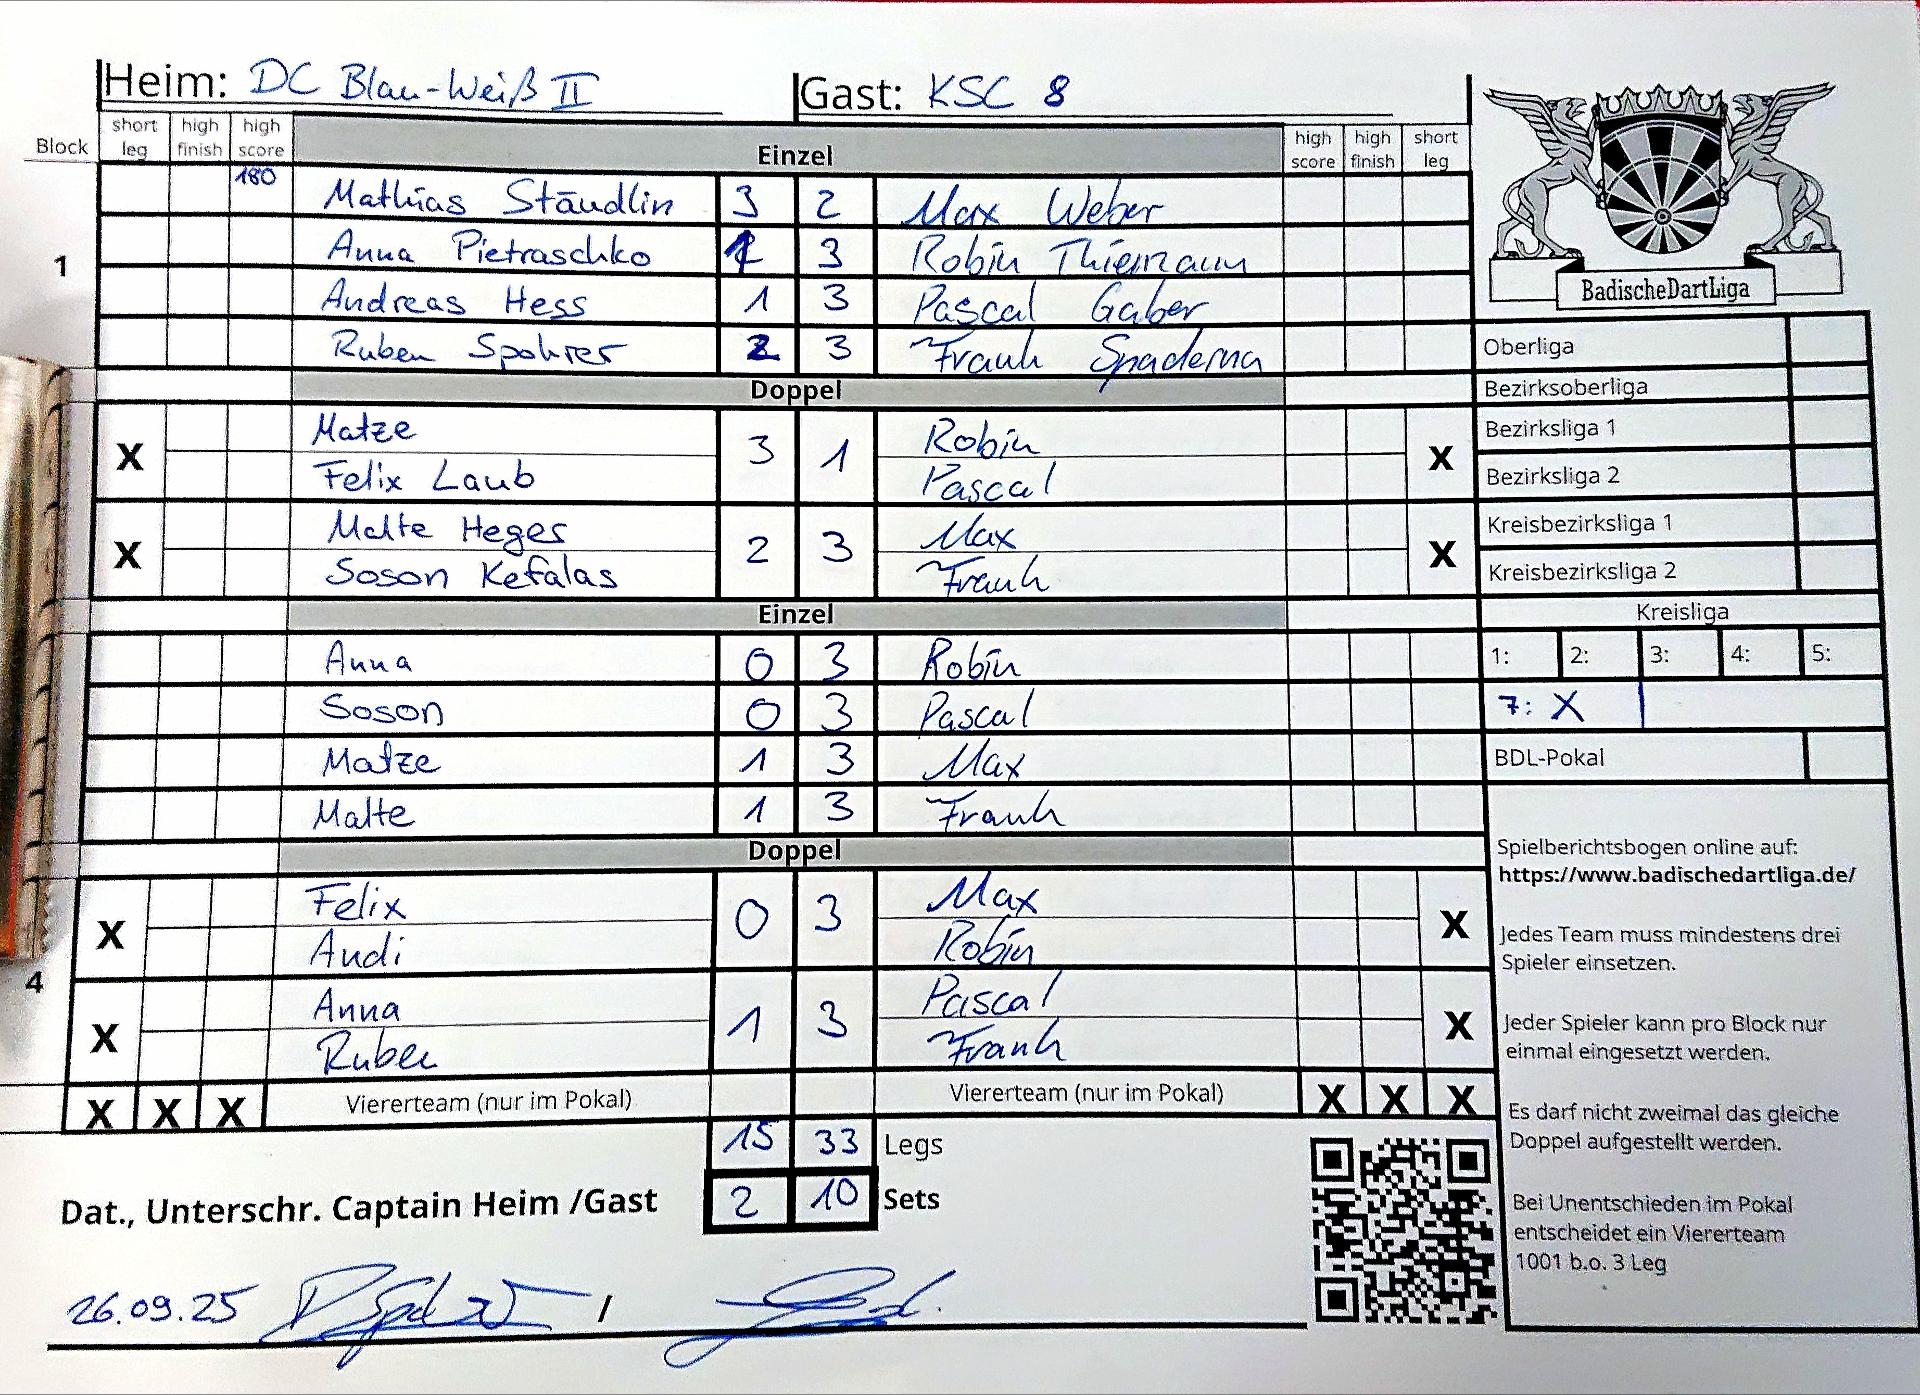 Heim: DC Blau-Weiß II Gast: KSC 8
Block short leg high finish high score Einzel high score high finish short leg
180 Mathias Ständlin 3 2 Max Weber
1 Anna Pietraschko 1 3 Robin Thiemann
Andreas Hess 1 3 Pascal Gaber
Ruben Spohrer 2 3 Frank Spaderna
Doppel
X Matze 3 1 Robin X
Felix Laub Pascal
X Malte Heger 2 3 Max X
Soson Kefalas Frank
Einzel
Anna 0 3 Robin
Soson 0 3 Pascal
Matze 1 3 Max
Malte 1 3 Frank
Doppel
X Felix 0 3 Max X
Andi Robin
4
X Anna 1 3 Pascal X
Ruben Frank
X X X Viererteam (nur im Pokal) Viererteam (nur im Pokal) X X X
15 33 Legs
2 10 Sets
Dat., Unterschr. Captain Heim /Gast
26.09.25 /
BadischeDartLiga
Oberliga
Bezirksoberliga
Bezirksliga 1
Bezirksliga 2
Kreisbezirksliga 1
Kreisbezirksliga 2
Kreisliga
1: 2: 3: 4: 5:
7: X
BDL-Pokal
Spielberichtsbogen online auf:
https://www.badischedartliga.de/
Jedes Team muss mindestens drei
Spieler einsetzen.
Jeder Spieler kann pro Block nur
einmal eingesetzt werden.
Es darf nicht zweimal das gleiche
Doppel aufgestellt werden.
Bei Unentschieden im Pokal
entscheidet ein Viererteam
1001 b.o. 3 Leg